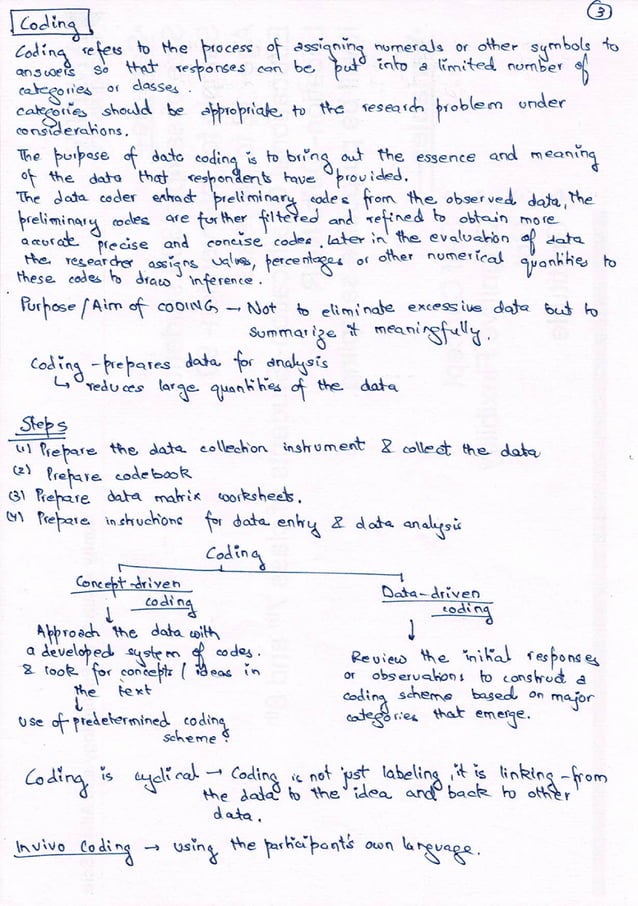 3
Coding
Coding refers to the process of assigning numerals or other symbols to
answers so that responses can be put into a limited number of
categories or classes.
categories should be appropriate to the research problem under
considerations.
The purpose of data coding is to bring out the essence and meaning
of the data that respondents have provided.
The data coder extract preliminary codes from the observed data, the
preliminary codes are further filtered and refined to obtain more
accurate precise and concise codes. Later in the evaluation of data
the researcher assigns values, percentages or other numerical quantities to
these codes to draw inference.
Purpose/Aim of CODING → Not to eliminate excessive data but to
summarize it meaningfully.
Coding - prepares data for analysis
↳ reduces large quantities of the data
Steps
(1) Prepare the data collection instrument & collect the data
(2) Prepare codebook
(3) Prepare data matrix worksheets.
(4) Prepare instructions for data entry & data analysis
Coding
Concept-driven
coding
↓
Approach the data with
a developed system of codes.
& look for concepts / ideas in
the text
↓
use of predetermined coding
scheme.
Data-driven
coding
↓
Review the initial responses
or observations to construct a
coding scheme based on major
categories that emerge.
Coding is cyclical → Coding is not just labeling, it is linking - from
the data to the idea and back to other
data.
Invivo Coding → using the participant's own language.